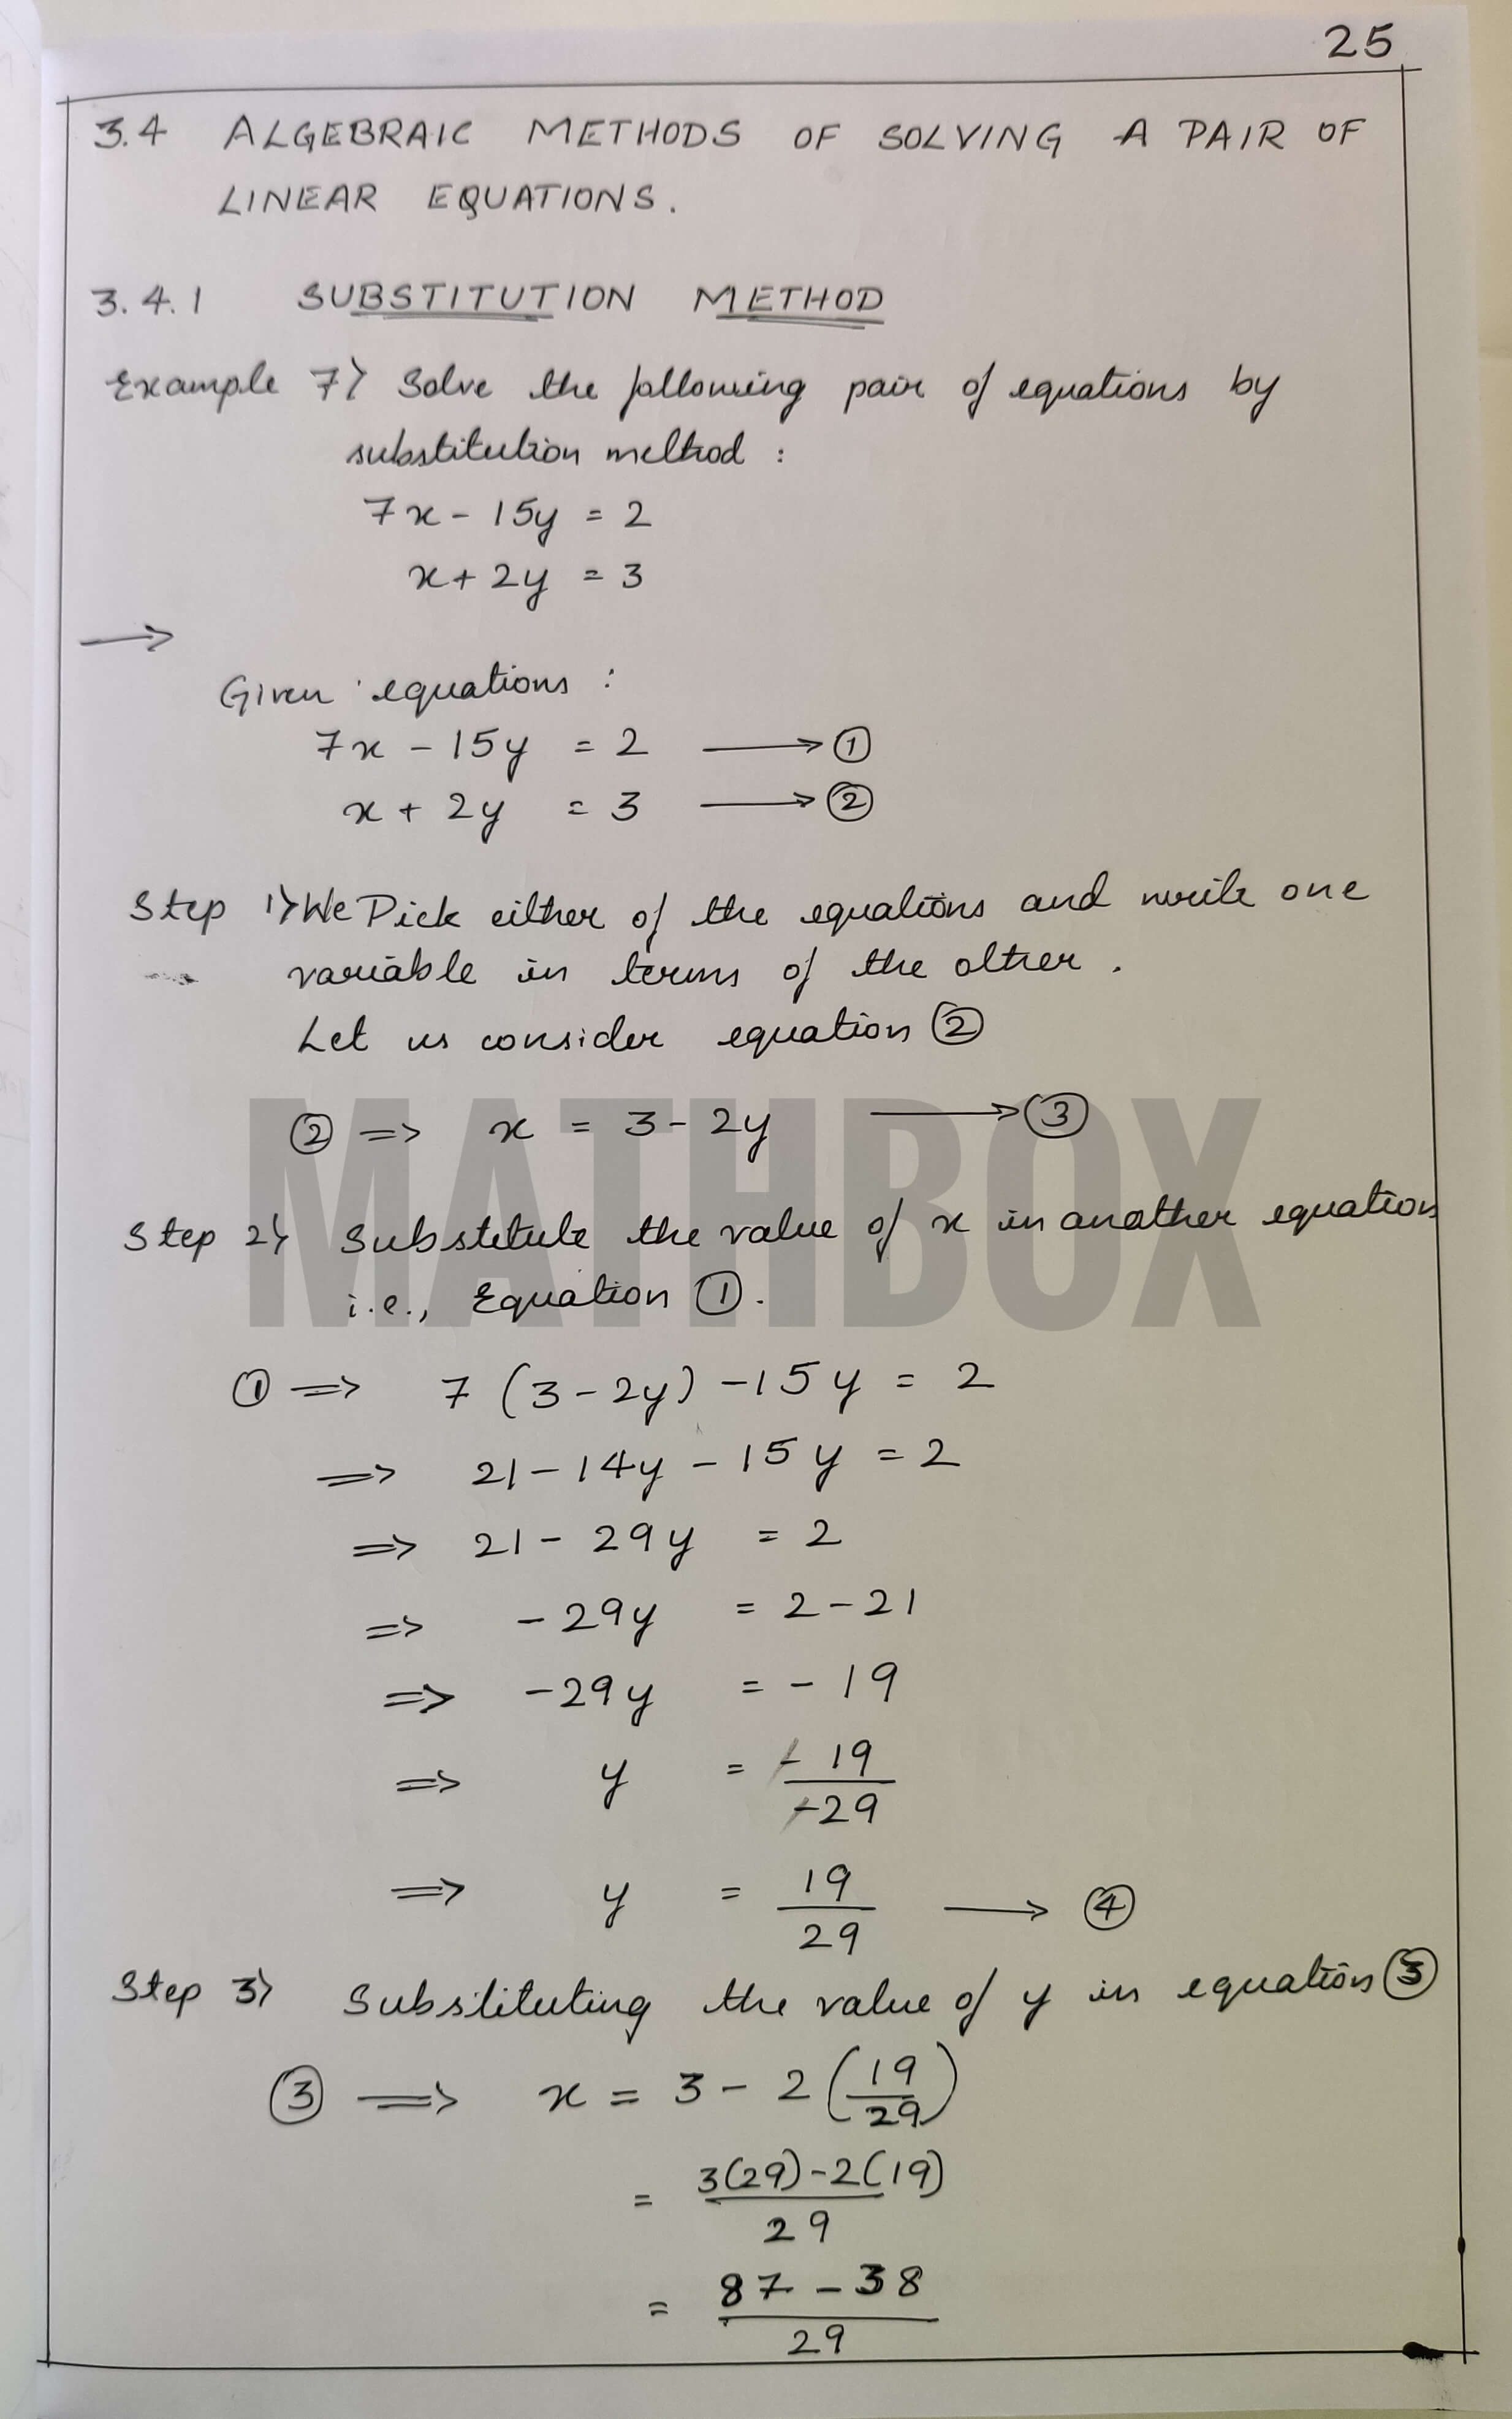 25
3.4 ALGEBRAIC METHODS OF SOLVING A PAIR OF
LINEAR EQUATIONS.
3.4.1 SUBSTITUTION METHOD
Example 7) Solve the following pair of equations by
substitution method :
7x - 15y = 2
x + 2y = 3
→
Given equations :
7x - 15y = 2 → ①
x + 2y = 3 → ②
Step 1) We Pick either of the equations and write one
variable in terms of the other.
Let us consider equation ②
② => x = 3 - 2y → ③
MATHBOX
Step 2) Substitute the value of x in another equation
i.e., Equation ①.
① => 7 (3 - 2y) - 15y = 2
=> 21 - 14y - 15y = 2
=> 21 - 29y = 2
=> - 29y = 2 - 21
=> - 29y = - 19
=> y = - 19 / - 29
=> y = 19 / 29 → ④
Step 3) Substituting the value of y in equation ③
③ => x = 3 - 2 (19 / 29)
= 3(29) - 2(19) / 29
= 87 - 38 / 29